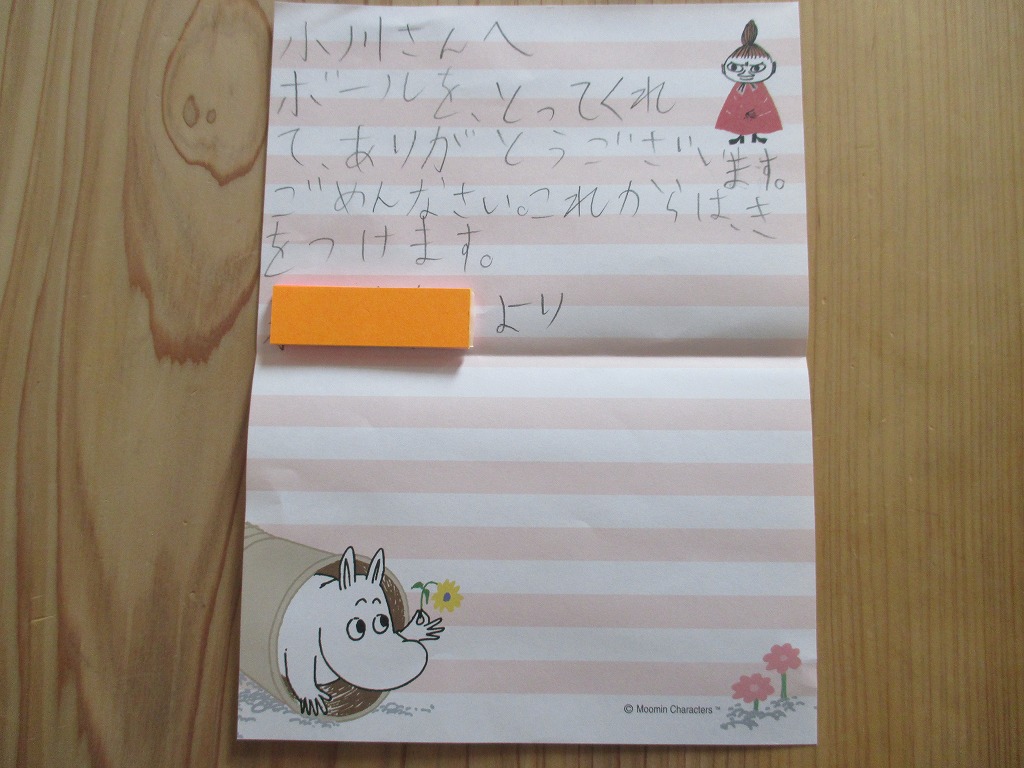 小川さんへ
ボールを、とってくれ
て、ありがとうございます。
ごめんなさい。これからは、き
をつけます。
より
© Moomin Characters™